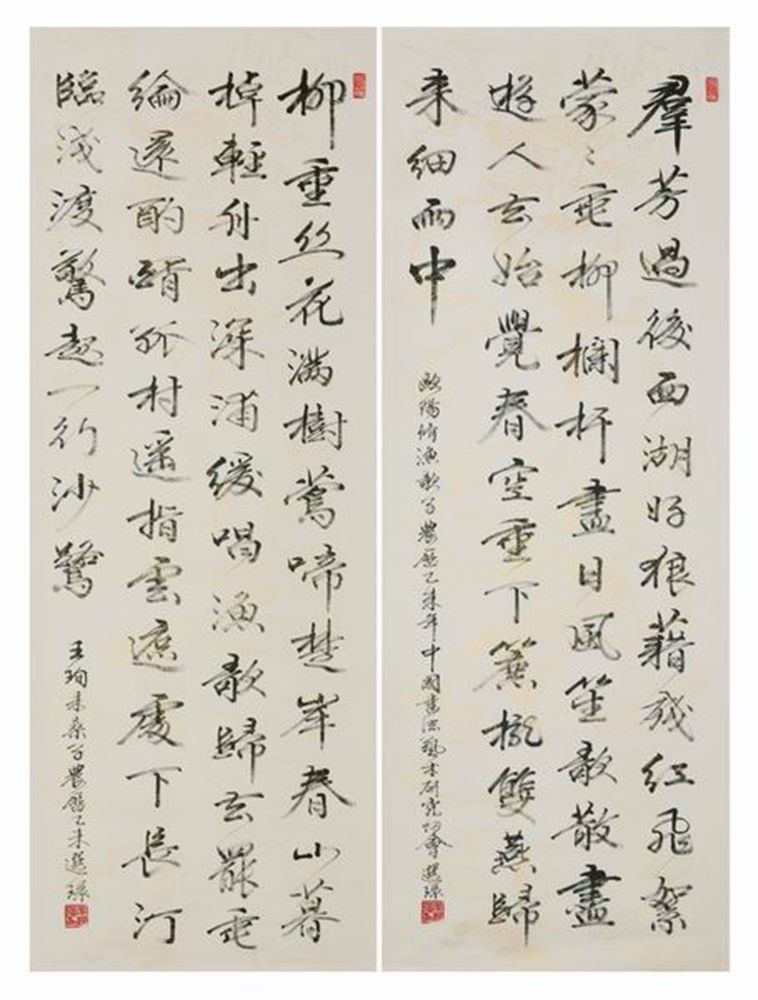 羣芳過後西湖好狼藉残红飛絮
蒙〻垂柳欄杆盡日風笙歌散盡
遊人去始覺春空垂下簾櫳雙燕歸
来细雨中
歐陽修漁歌句農歷乙未年中國書法藝术研究
柳垂丝花满樹鶯啼楚岸春山暮
棹輕舟出深浦缓唱漁歌歸去罷垂
綸還酌醑孤村遥指雲遮處下長汀
臨浅渡驚起一行沙鷺
句農歷乙未選